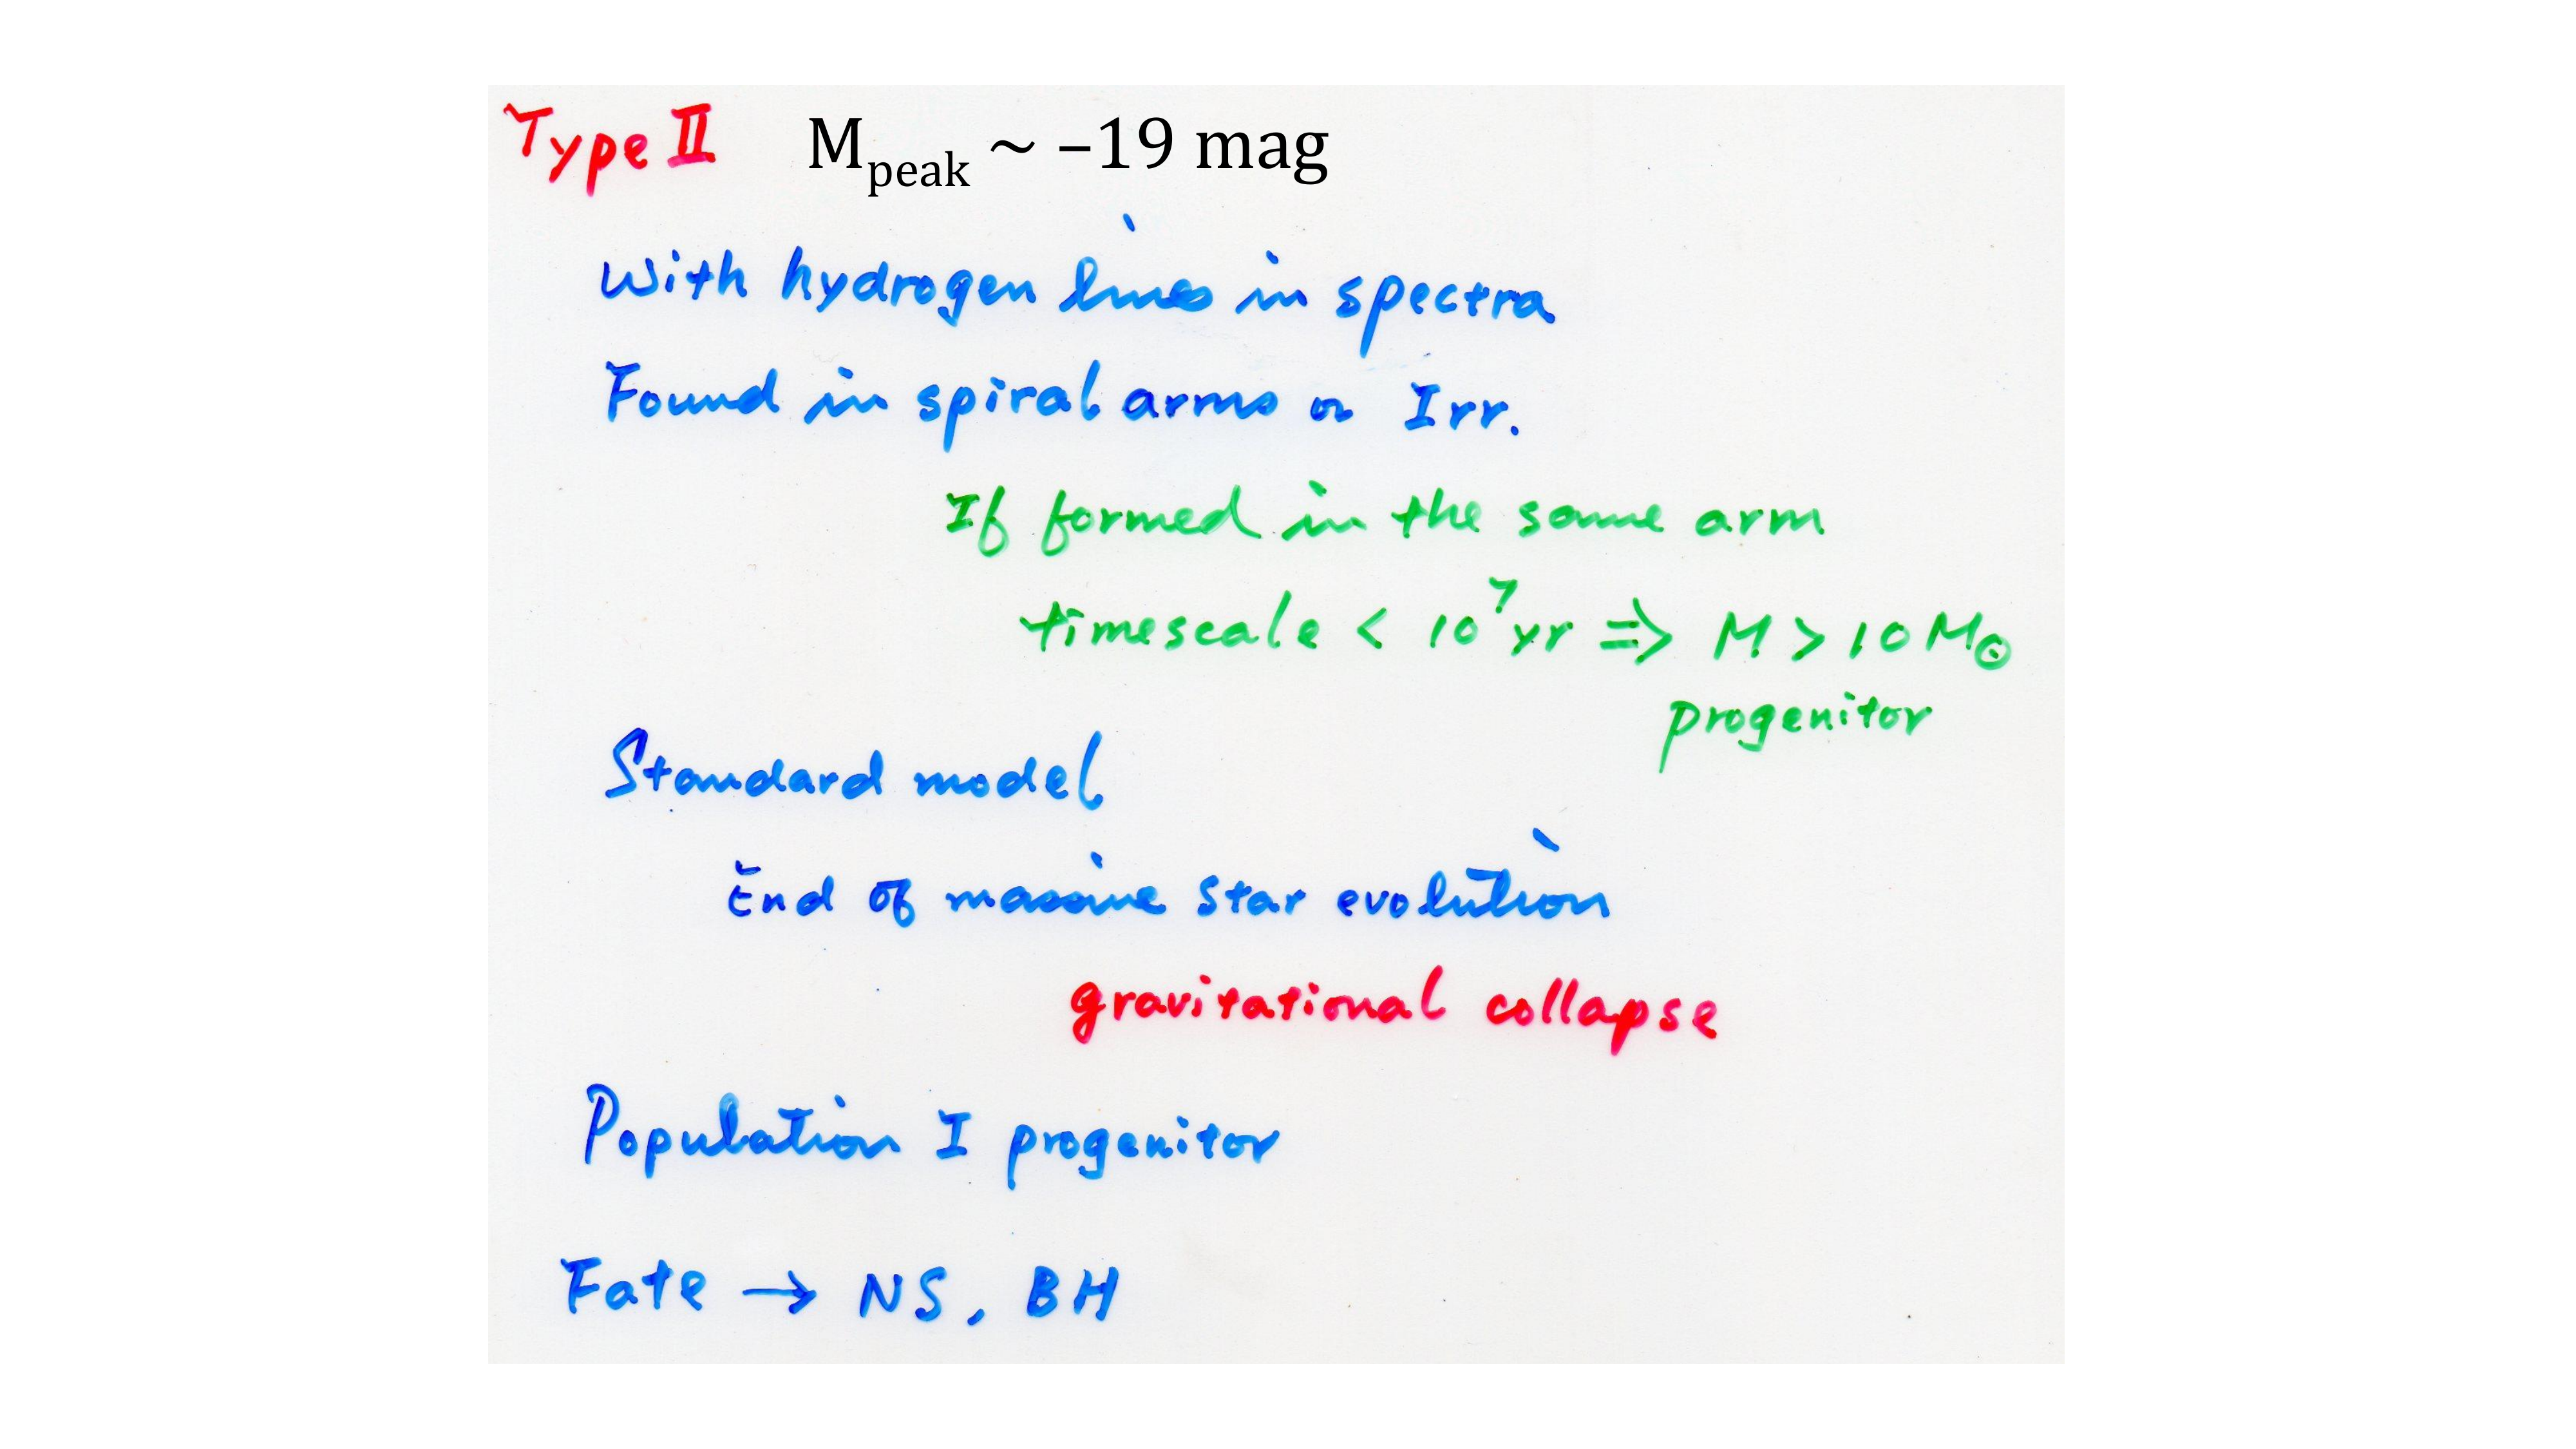 Type II M_peak ~ –19 mag
With hydrogen lines in spectra
Found in spiral arms or Irr.
If formed in the same arm
timescale < 10⁷ yr ⇒ M > 10 M☉
progenitor
Standard model
End of massive star evolution
gravitational collapse
Population I progenitor
Fate → NS, BH